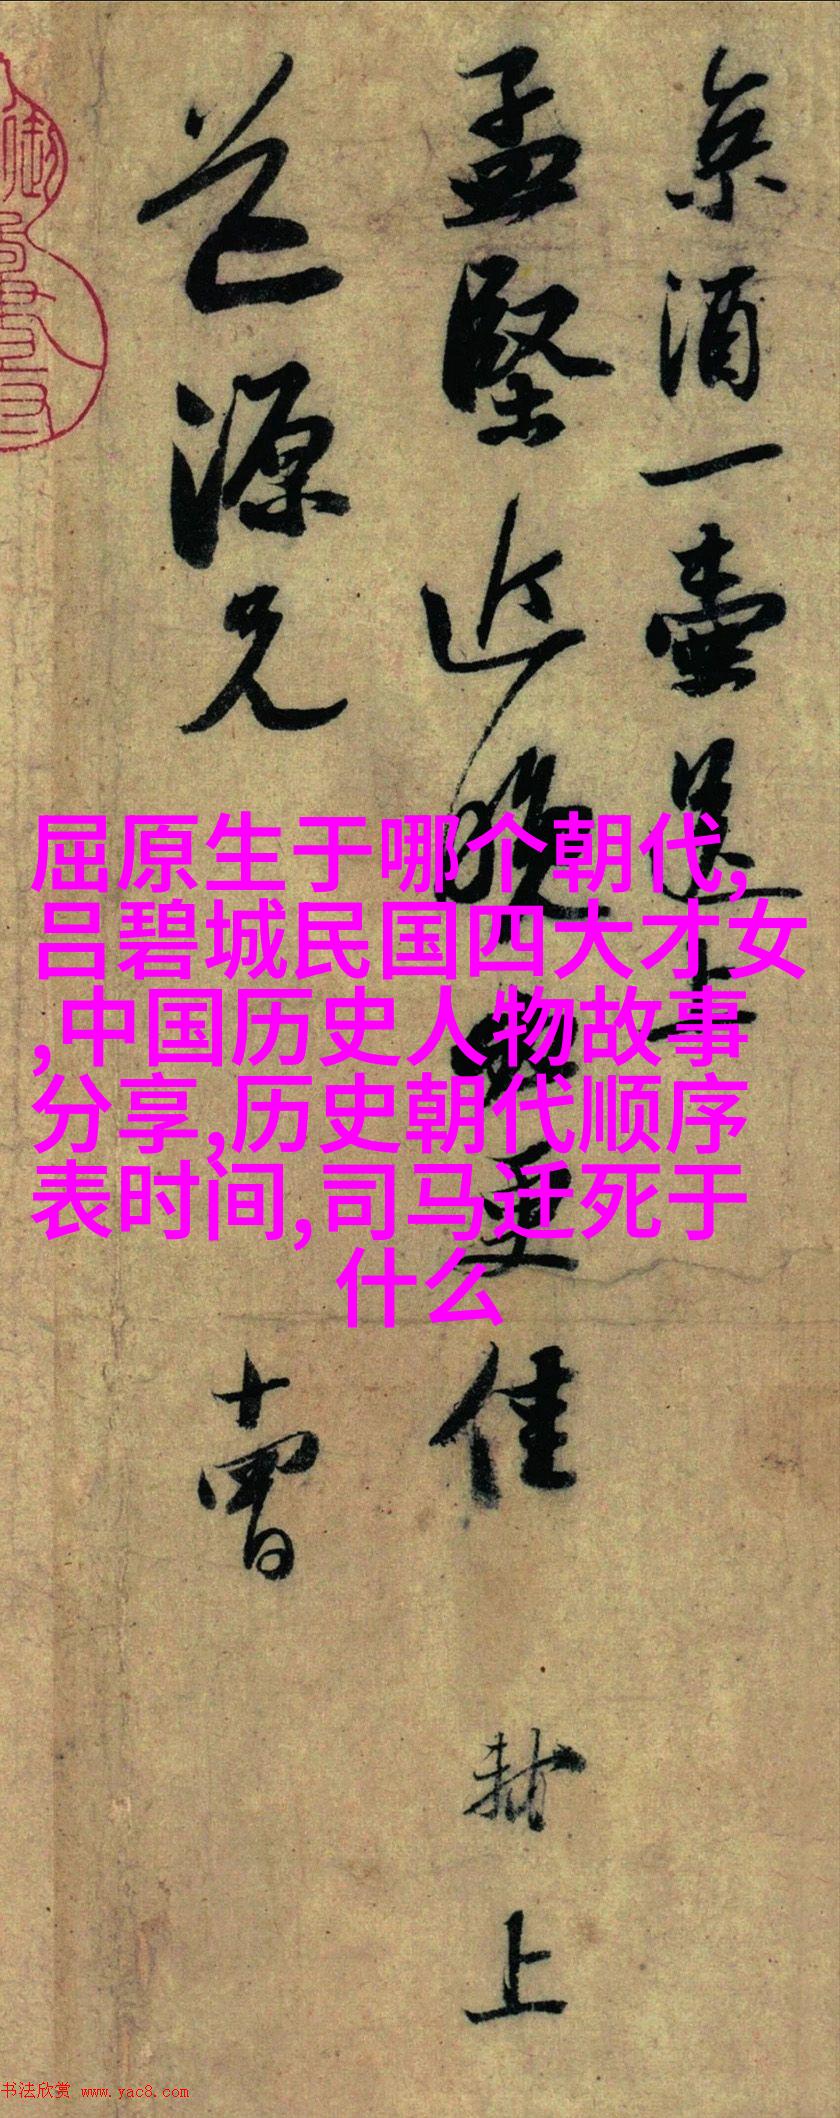 京酒一壶送上
孟坚近晚必更佳
芾上
芯源兄
十曹
屈原生于哪个朝代,
吕碧城民国四大才女
,中国历史人物故事
分享,历史朝代顺序
表时间,司马迁死于
什么
书法欣赏 www.yac8.com